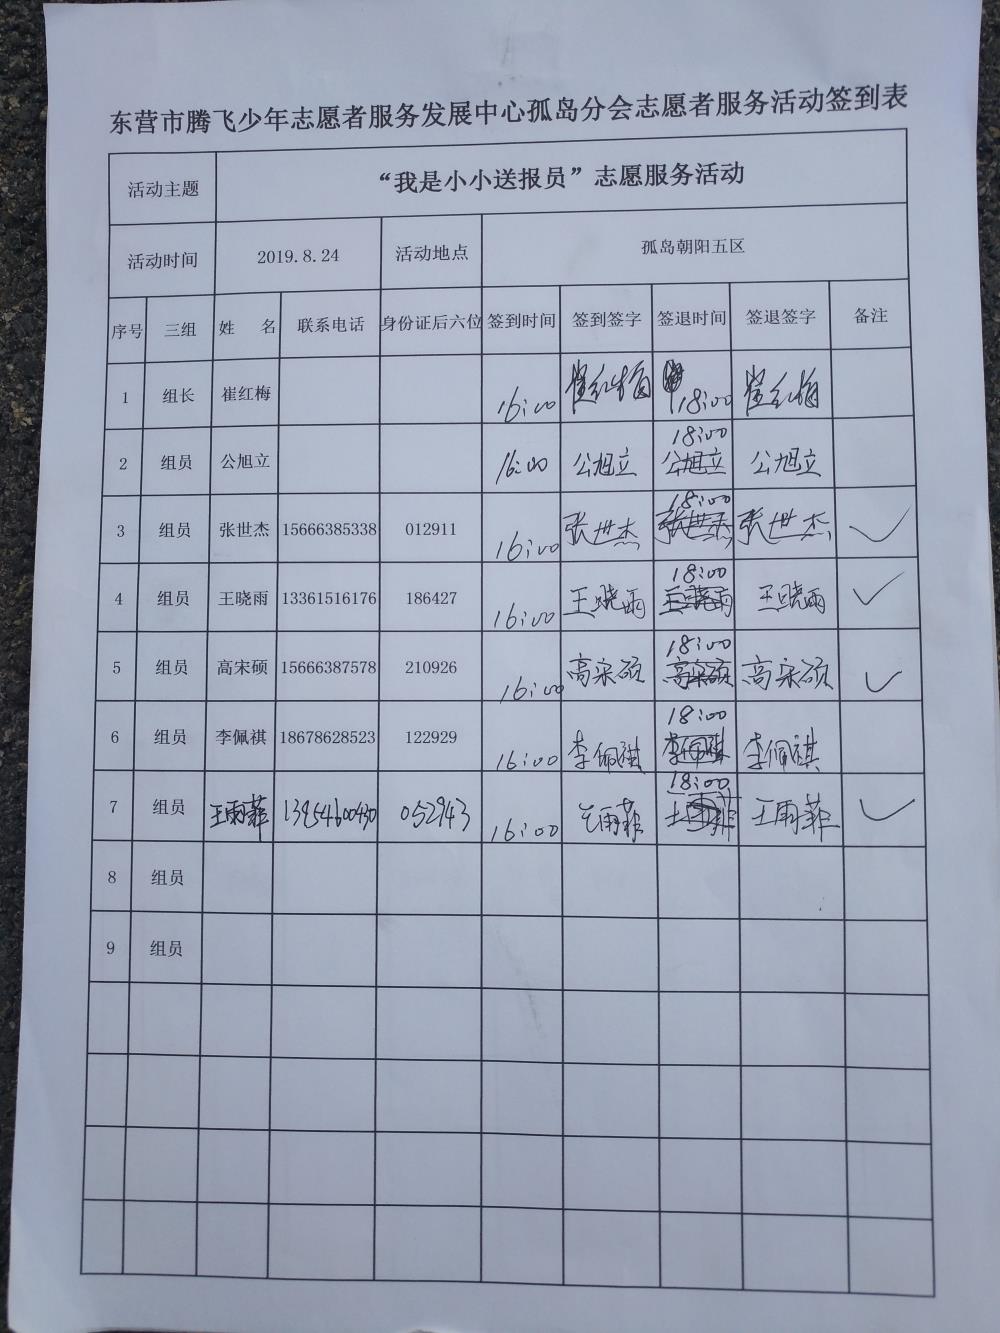 东营市腾飞少年志愿者服务发展中心孤岛分会志愿者服务活动签到表
活动主题 “我是小小送报员”志愿服务活动
活动时间 2019.8.24 活动地点 孤岛朝阳五区
序号 三组 姓 名 联系电话 身份证后六位 签到时间 签到签字 签退时间 签退签字 备注
1 组长 崔红梅 16:00 崔红梅 18:00 崔红梅
2 组员 公旭立 16:00 公旭立 18:00 公旭立 公旭立
3 组员 张世杰 15666385338 012911 16:00 张世杰 18:00 张世杰 张世杰 ✓
4 组员 王晓雨 13361516176 186427 16:00 王晓雨 18:00 王晓雨 王晓雨 ✓
5 组员 高宋硕 15666387578 210926 16:00 高宋硕 18:00 高宋硕 高宋硕 ✓
6 组员 李佩祺 18678628523 122929 16:00 李佩祺 18:00 李佩祺 李佩祺
7 组员 王雨菲 052943 16:00 王雨菲 18:00 王雨菲 王雨菲 ✓
8 组员
9 组员